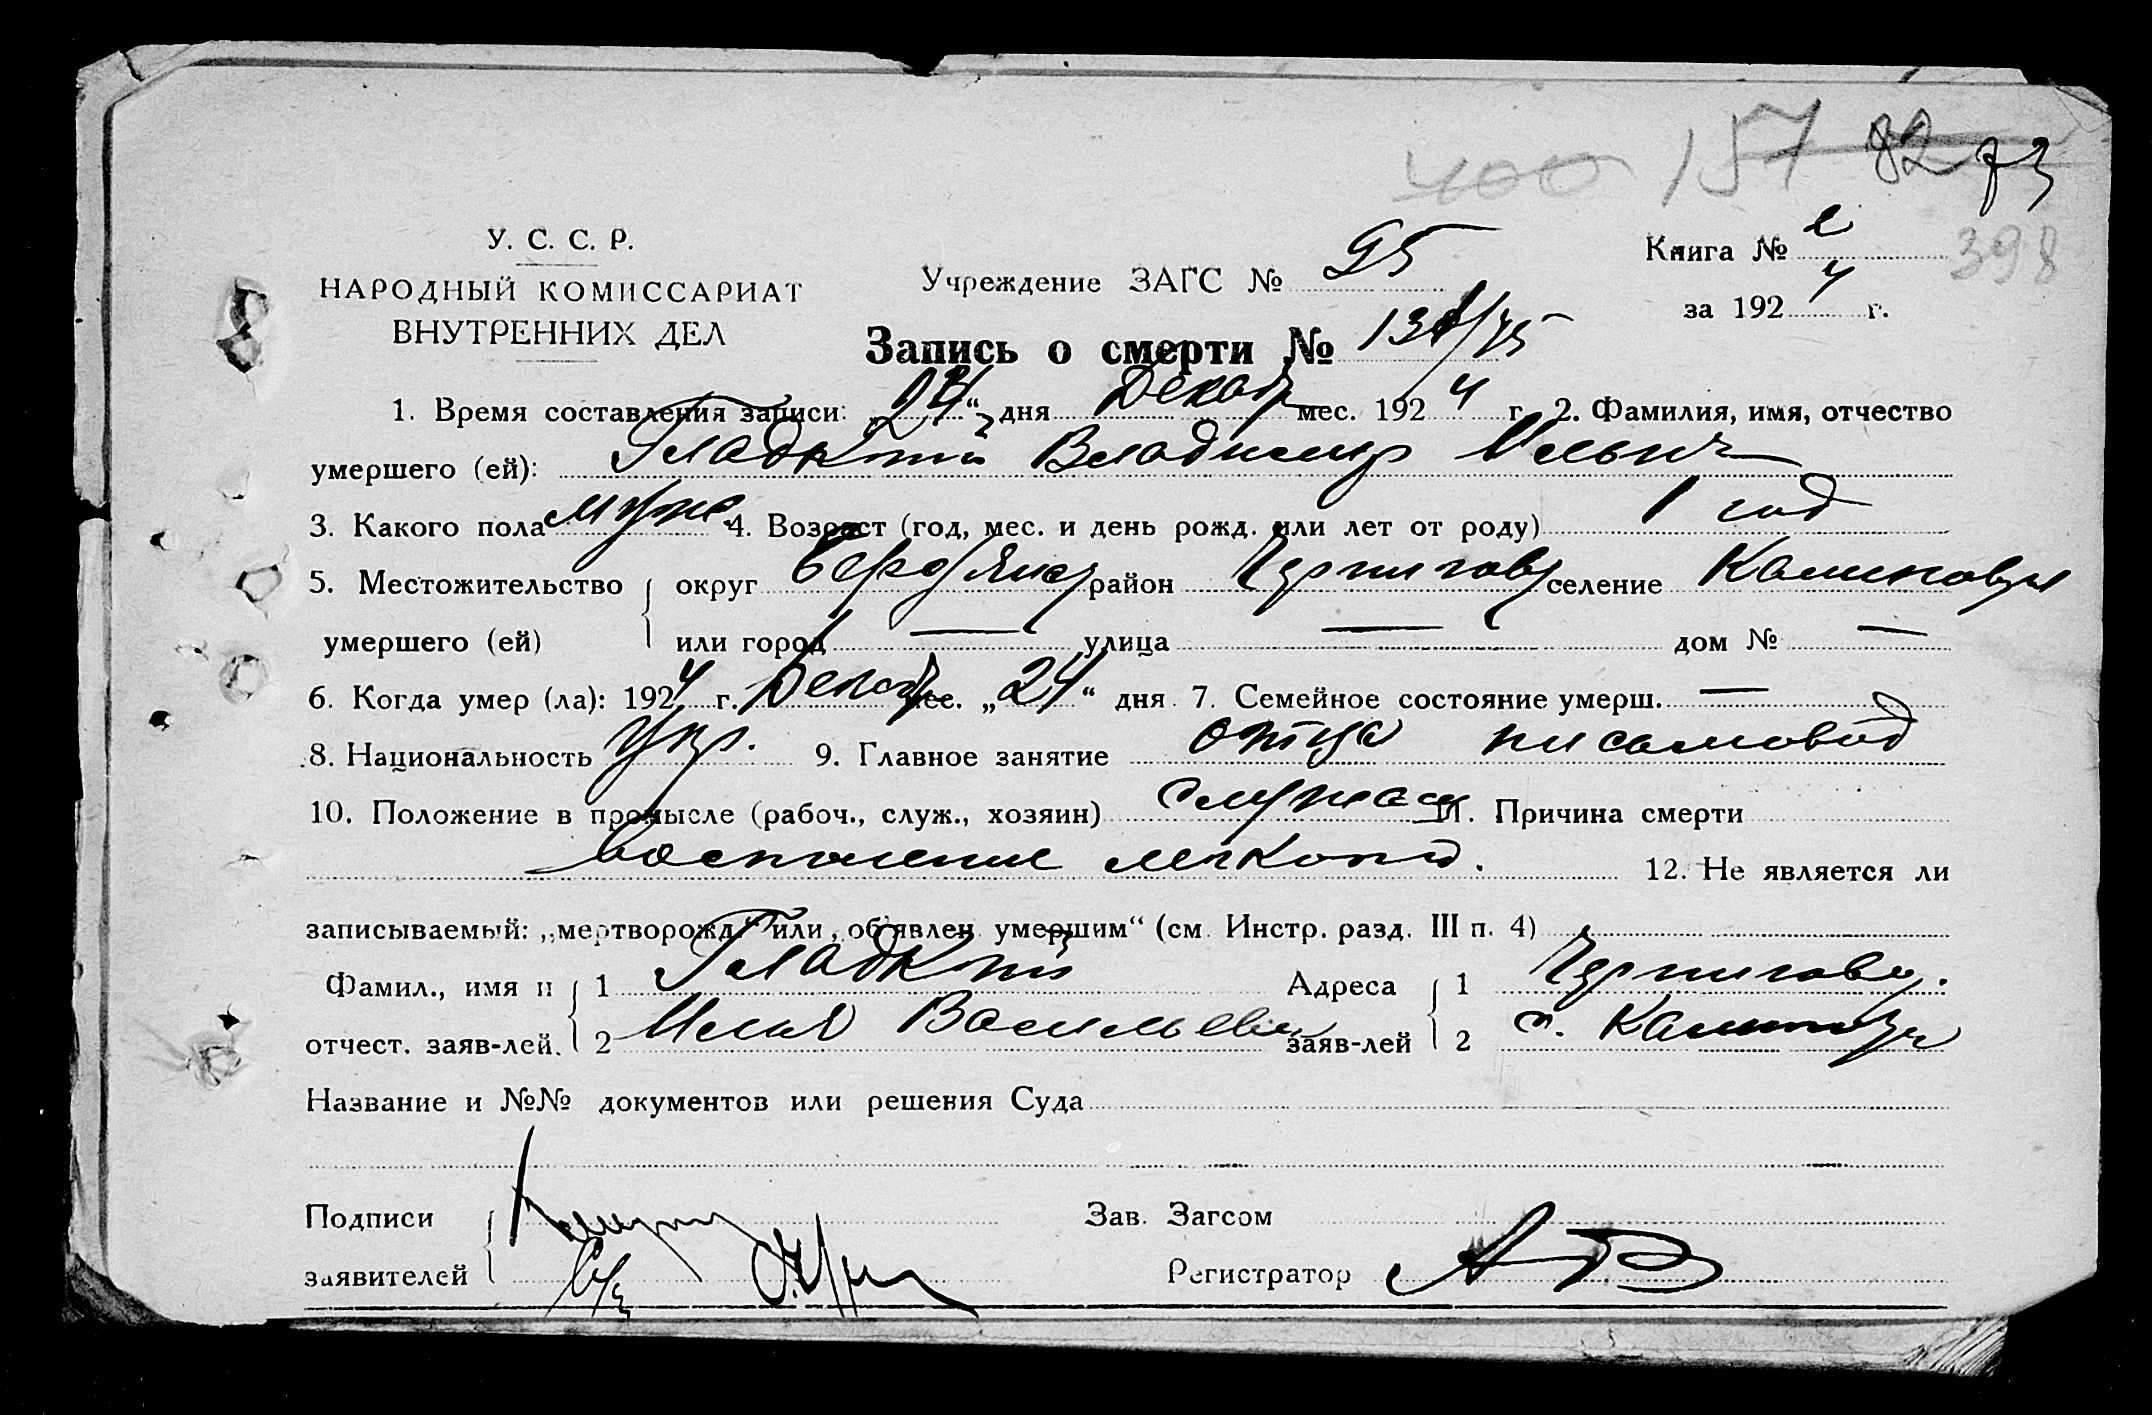 400 157 82 73
398
У. С. С. Р.
НАРОДНЫЙ КОМИССАРИАТ
ВНУТРЕННИХ ДЕЛ
Учреждение ЗАГС № 95
Книга № 2
за 1924 г.
Запись о смерти №
1. Время составления записи: „24“ дня Декаб мес. 1924 г. 2. Фамилия, имя, отчество
умершего (ей): Гладкий Владимир Ильич
3. Какого пола муж. 4. Возраст (год, мес. и день рожд. или лет от роду) 1 год
5. Местожительство округ Бердянс район Чернигов селение
умершего (ей) или город — улица — дом № —
6. Когда умер (ла): 1924 г. Декаб мес. „24“ дня 7. Семейное состояние умерш. —
8. Национальность Укр. 9. Главное занятие отца письмовод
10. Положение в промысле (рабоч., служ., хозяин) служащ 11. Причина смерти
воспаление легких.
12. Не является ли
записываемый: „мертворожд.“ или „об'явлен умершим“ (см. Инстр. разд. III п. 4)
Фамил., имя и отчест. заяв-лей. 1 Гладкий Адреса заяв-лей 1 Чернигов.
2 Илья Васильев 2 с.
Название и №№ документов или решения Суда
Подписи заявителей
Зав. Загсом
Регистратор